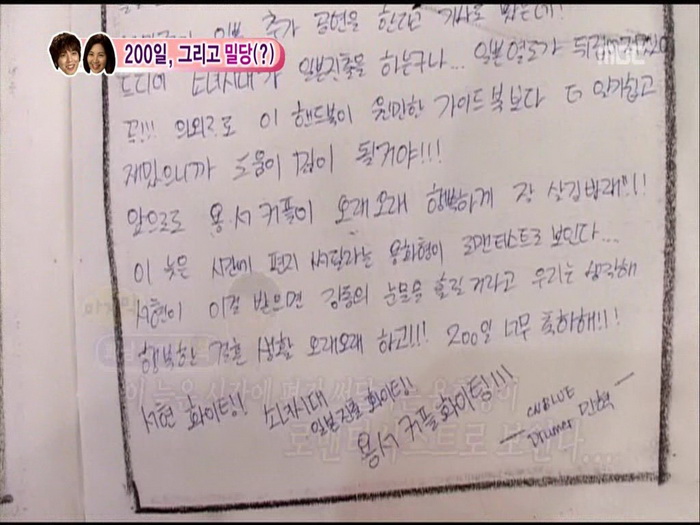 200일, 그리고 밀당(?)
MBC
일본 추가 공연을 한다고 기사로 봤는데!
드디어 소녀시대가 일본진출을 하는구나... 일본열도가
꾼!!! 의외로 이 핸드북이 웬만한 가이드 북보다 더 알차고
재밌으니까 도움이 많이 될거야!!!
앞으로도 용서커플이 오래오래 행복하게 잘 살길바래!!!
이 늦은 시간에 편지 써달라는 용화형이 로맨티스트로 보인다...
서현이 이걸 받으면 감동의 눈물을 흘릴 거라고 우리는 생각해
행복한 결혼 생활 오래오래 하고!!! 200일 너무 축하해!!!
서현 화이팅! 소녀시대 일본진출 화이팅!
용서 커플 화이팅!!!
CNBLUE
Drumer 민혁
이 늦은 시간에 편지 써달라는 용화형이
로맨티스트로 보인다...